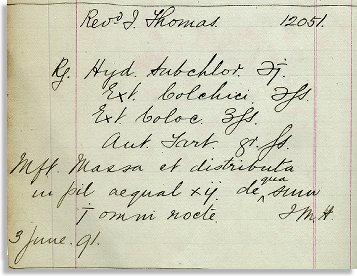 Revd J. Thomas. 12051.
Rg. Hyd. Subchlor. ℈j.
Ext. Colchici. ℈fs.
Ext Coloc. ʒfs.
Ant. Tart. gr fs.
Mft. Massa et distributa
in pil aequal xij. de qua sum
j omni nocte J M H
3 June. 91.